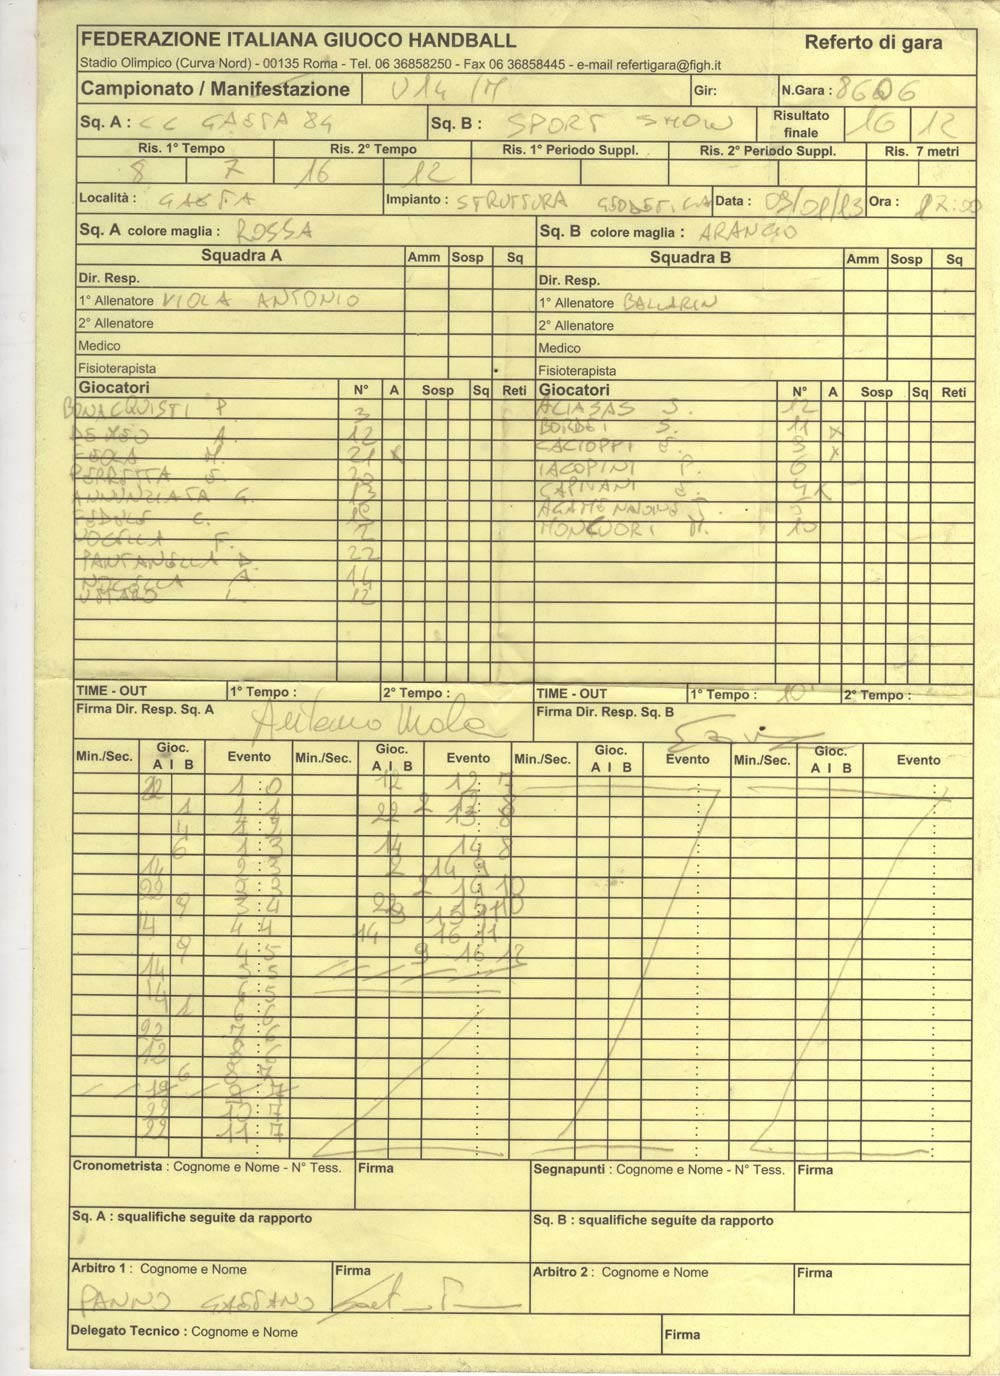 FEDERAZIONE ITALIANA GIUOCO HANDBALL
Referto di gara
Stadio Olimpico (Curva Nord) - 00135 Roma - Tel. 06 36858250 - Fax 06 36858445 - e-mail refertigara@figh.it
Campionato / Manifestazione U14 /M Gir: N.Gara : 8606
Sq. A : CC GAETA 84 Sq. B : SPORT SHOW Risultato finale 16 12
Ris. 1° Tempo Ris. 2° Tempo Ris. 1° Periodo Suppl. Ris. 2° Periodo Suppl. Ris. 7 metri
8 7 16 12
Località : GAETA Impianto : STRUTTURA GEODETICA Data : Ora :
Sq. A colore maglia : ROSSA Sq. B colore maglia : ARANCIO
Squadra A Amm Sosp Sq Squadra B Amm Sosp Sq
Dir. Resp. Dir. Resp.
1° Allenatore VIOLA ANTONIO 1° Allenatore BALLARIN
2° Allenatore 2° Allenatore
Medico Medico
Fisioterapista Fisioterapista
Giocatori N° A Sosp Sq Reti Giocatori N° A Sosp Sq Reti
BONACQUISTI P. 3 12
A. 12 BORDEI S. 11 x
M. 21 x CACIOPPI
PERRETTA 20 IACOPINI P. 6
ANNUNZIATA G. 4 x
FEDELE C.
F. 2 M. 10
PANTANELLA D. 22
A. 14
L. 12
TIME - OUT 1° Tempo : 2° Tempo : TIME - OUT 1° Tempo : 10' 2° Tempo :
Firma Dir. Resp. Sq. A Antonio Viola Firma Dir. Resp. Sq. B
Min./Sec. Gioc. A I B Evento Min./Sec. Gioc. A I B Evento Min./Sec. Gioc. A I B Evento Min./Sec. Gioc. A I B Evento
22 1:0 12 12:7
1 1:1
4 1:2 22 13:8
6 1:3 14 14:8
14 2:3 2 14:9
22 3:3 2 14:10
9 3:4 22
14 4:4 14 16:11
9 4:5 9 16:12
14 5:5
14 6:5
1 6:6
22 7:6
12 8:6
6 8:7
9:7
22 10:7
22 11:7
Cronometrista : Cognome e Nome - N° Tess. Firma Segnapunti : Cognome e Nome - N° Tess. Firma
Sq. A : squalifiche seguite da rapporto Sq. B : squalifiche seguite da rapporto
Arbitro 1 : Cognome e Nome Firma Arbitro 2 : Cognome e Nome Firma
PANNO GAETANO
Delegato Tecnico : Cognome e Nome Firma